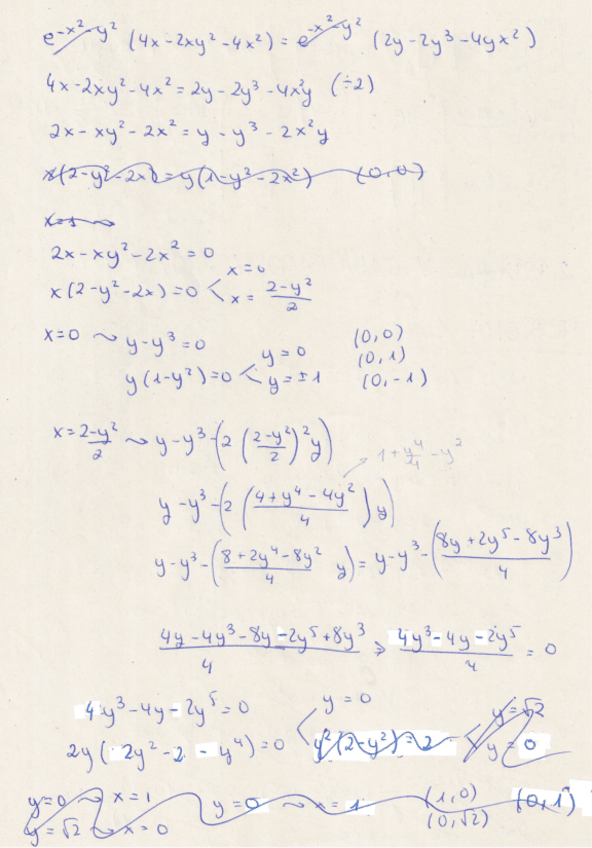 e^(-x²-y²) (4x-2xy²-4x²) = e^(-x²-y²) (2y-2y³-4yx²)
4x-2xy²-4x² = 2y-2y³-4x²y (÷2)
2x-xy²-2x² = y-y³-2x²y
x(2-y²-2x) = y(1-y²-2x²) (0,0)
x=1
2x-xy²-2x² = 0
x(2-y²-2x) = 0 < x=0
x = (2-y²)/2
x=0 ~> y-y³ = 0 (0,0)
y(1-y²) = 0 < y=0 (0,1)
y=±1 (0,-1)
x = (2-y²)/2 ~> y-y³-(2((2-y²)/2)²y) 1+y⁴/4-y²
y-y³-(2((4+y⁴-4y²)/4)y)
y-y³-((8+2y⁴-8y²)/4 y) = y-y³-((8y+2y⁵-8y³)/4)
(4y-4y³-8y-2y⁵+8y³)/4 => (4y³-4y-2y⁵)/4 = 0
4y³-4y-2y⁵ = 0 < y=0 y=√2
2y(2y²-2-y⁴) = 0 y²(2-y²)=2 < y=0
y=0 ~> x=1 y=0 ~> x=1 (1,0) (0,1)
y=√2 ~> x=0 (0,√2)